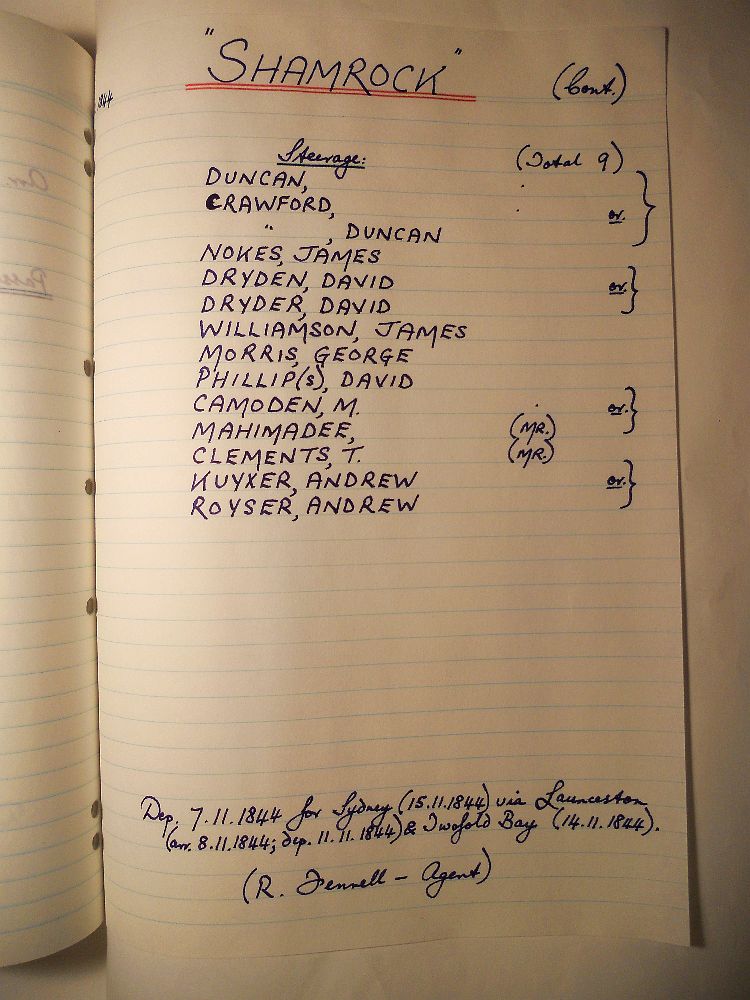 "SHAMROCK" (Cont.)
844
Steerage: (Total 9)
DUNCAN,
CRAWFORD, or.
" , DUNCAN
NOKES, JAMES
DRYDEN, DAVID or.
DRYDER, DAVID
WILLIAMSON, JAMES
MORRIS, GEORGE
PHILLIP(s), DAVID
CAMODEN, M. or.
MAHIMADEE, (MR.)
CLEMENTS, T. (MR.)
KUYXER, ANDREW or.
ROYSER, ANDREW
Dep. 7.11.1844 for Sydney (15.11.1844) via Launceston
(arr. 8.11.1844; dep. 11.11.1844) & Twofold Bay (14.11.1844).
(R. Fennell - Agent)